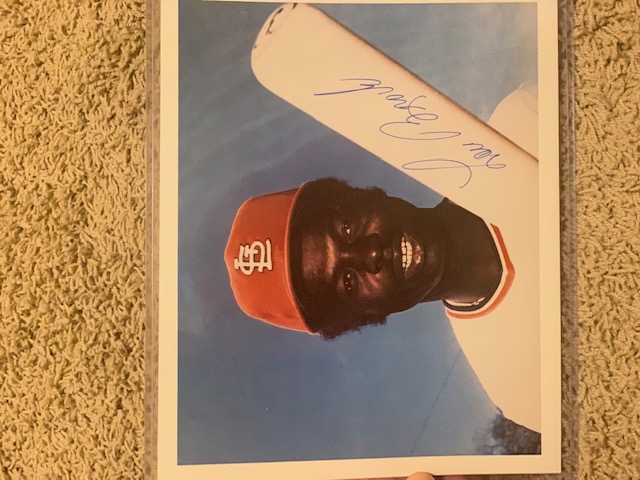 STL
Lou Brock